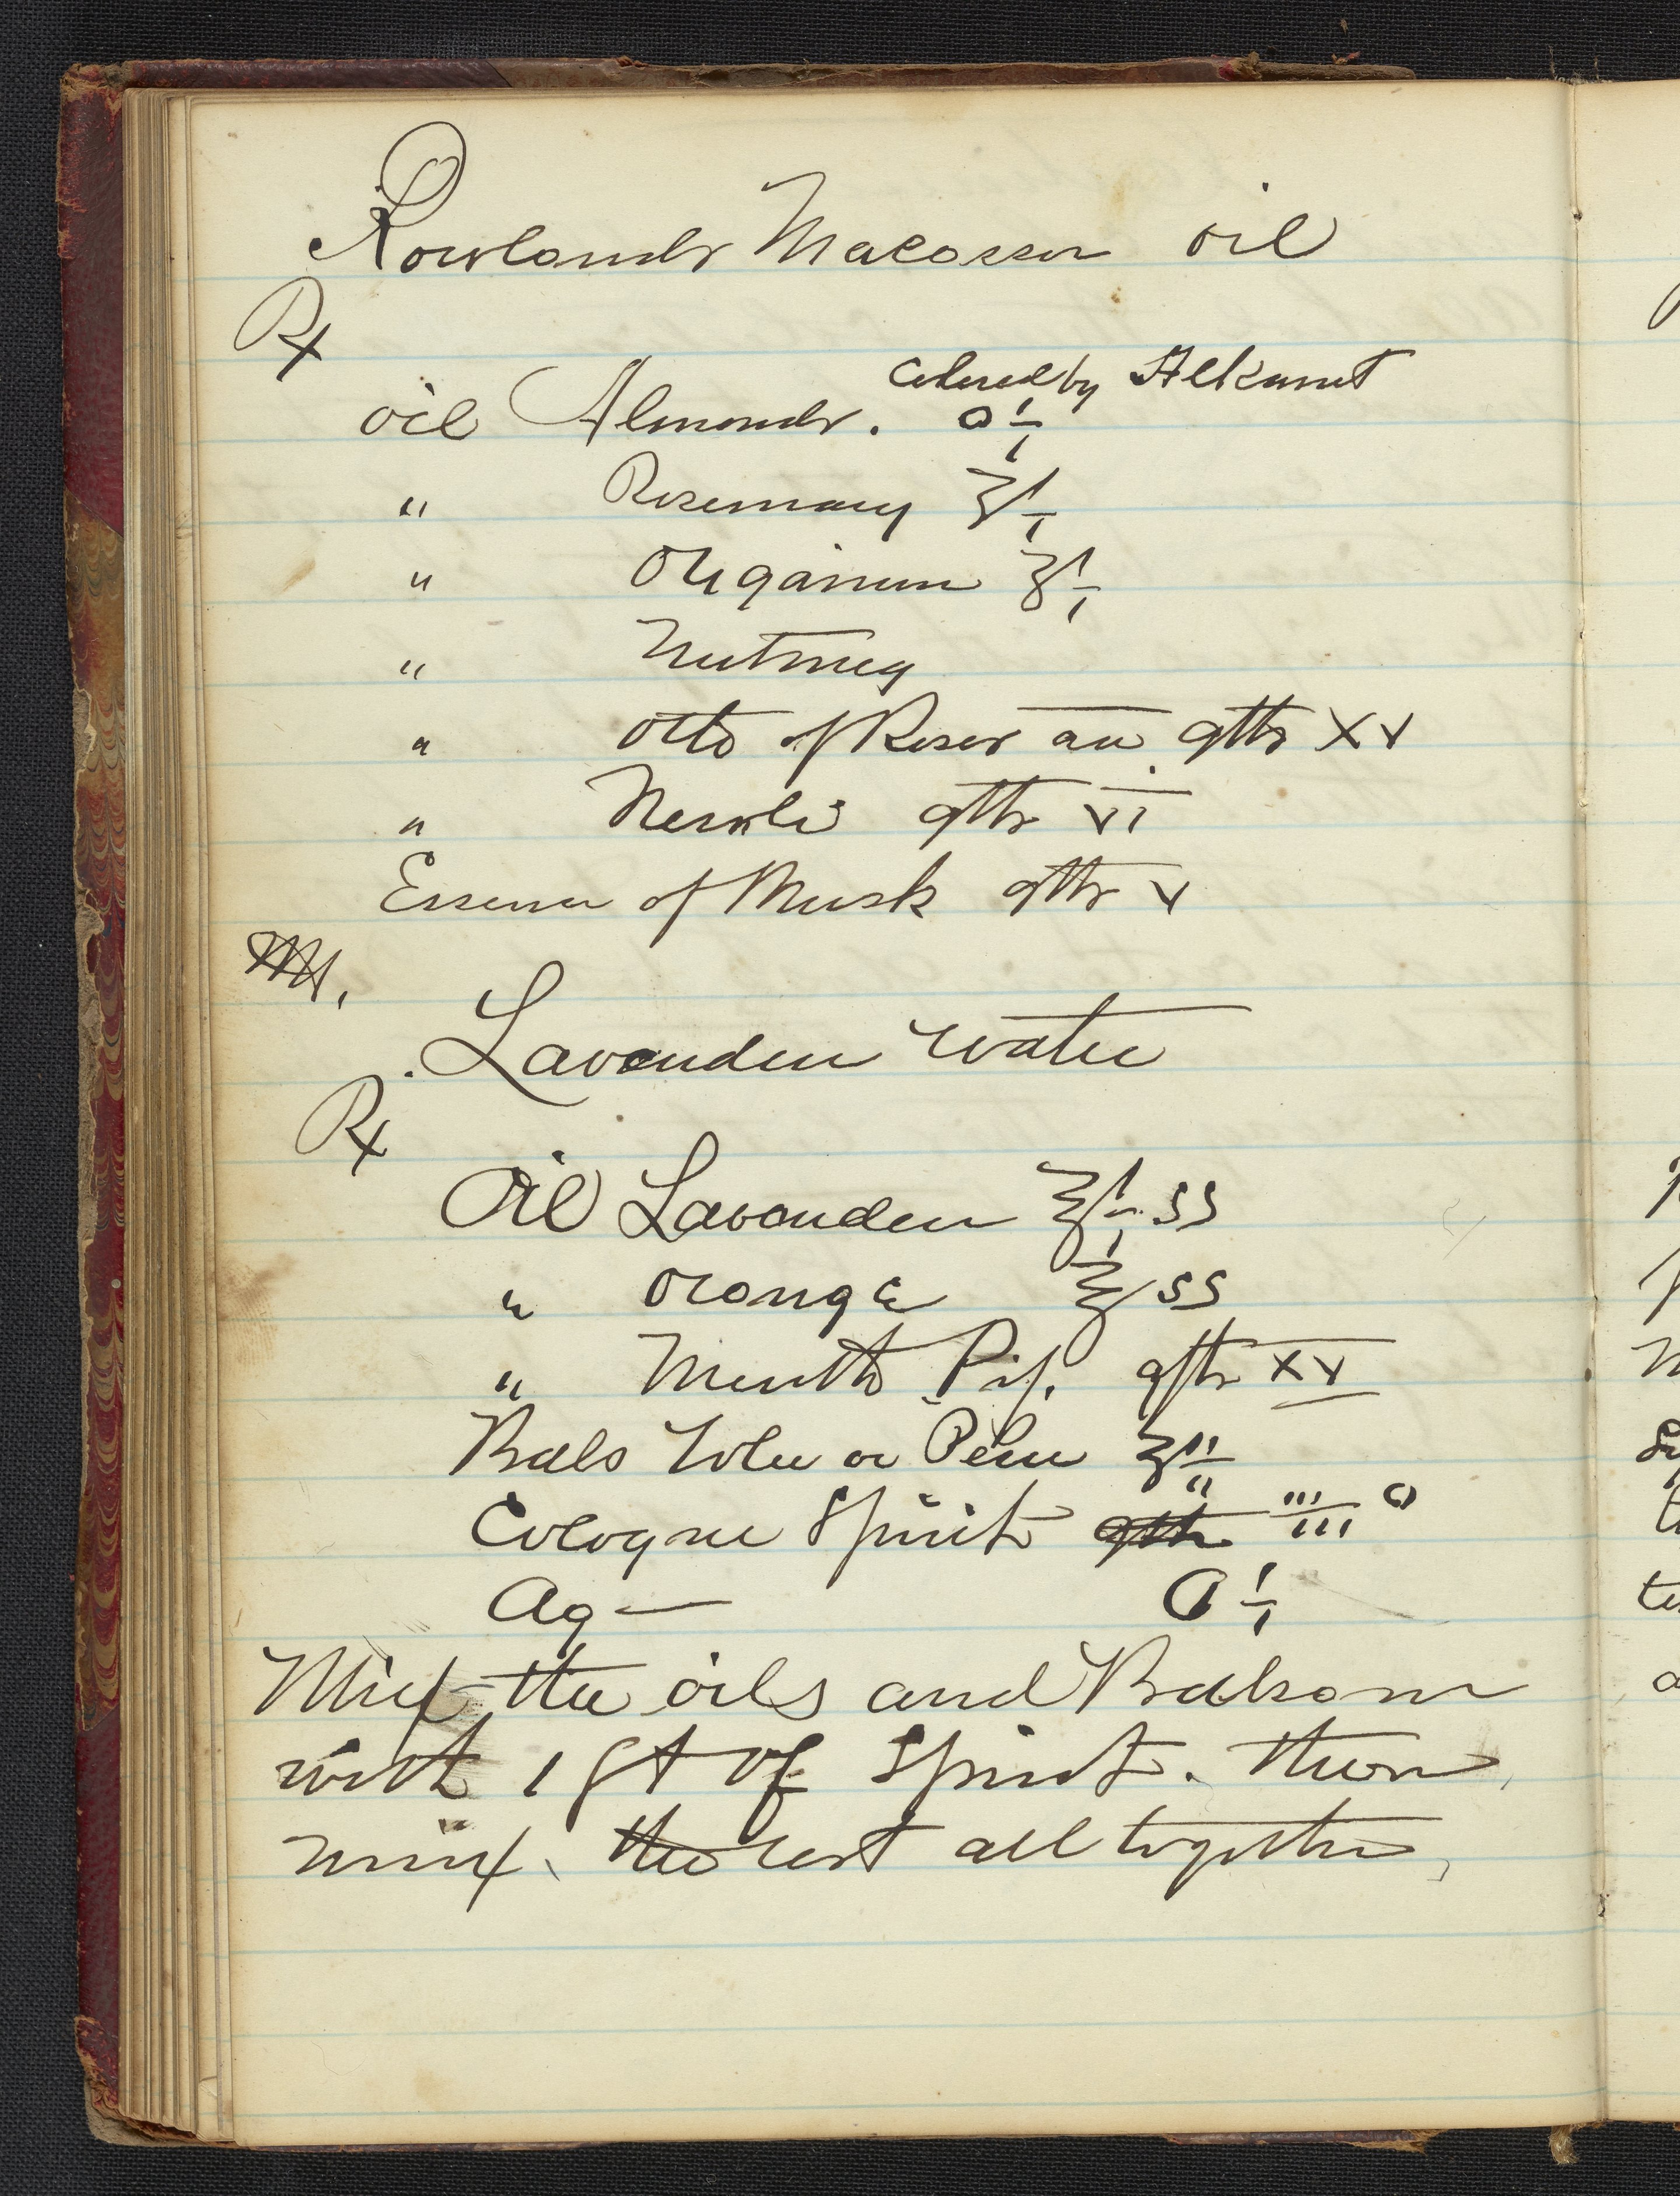 Rowlands Macassar oil
℞
colored by Alkanet
oil Almonds. O i
" Rosemary ʒ i
" Origanum ʒ i
" Nutmeg
" Otto of Roses aa gtts XV
" Neroli gtts VI
Essence of Musk gtts V
M.
Lavender water
℞
Oil Lavender ℥ i ss
" orange ℥ ss
" Menth Pip. gtts XV
Bals Tolu or Peru ʒ ii
Cologne Spirit gtts iii O
Aq — O i
Mix the oils and Balsam
with 1 pt of Spirit. then
mix the rest all together,